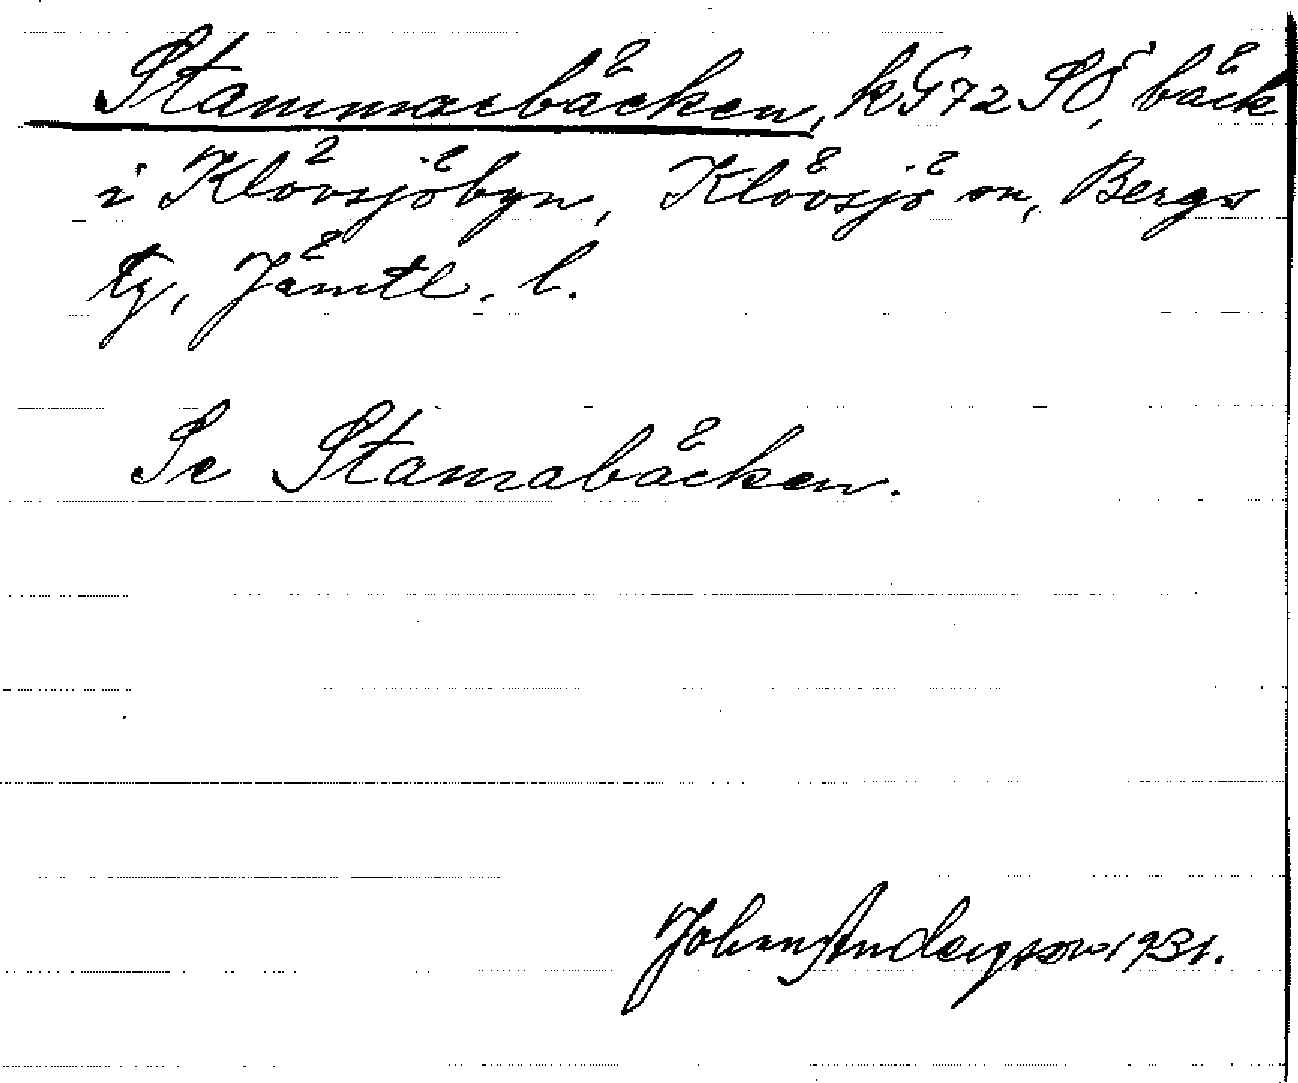 Stammarbäcken, kG72SÖ, bäck
i Klövsjöbyn, Klövsjö sn, Bergs
tg, Jämtl. l.
Se Stamabäcken.
Johan Anderson 1931.